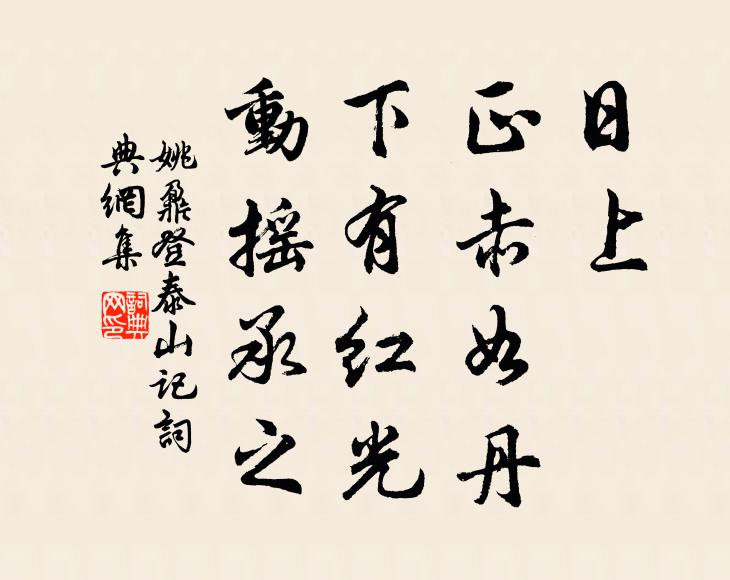 日上
正赤如丹
下有红光
動摇承之
姚鼐登泰山记詞
典網集
詞典
网印